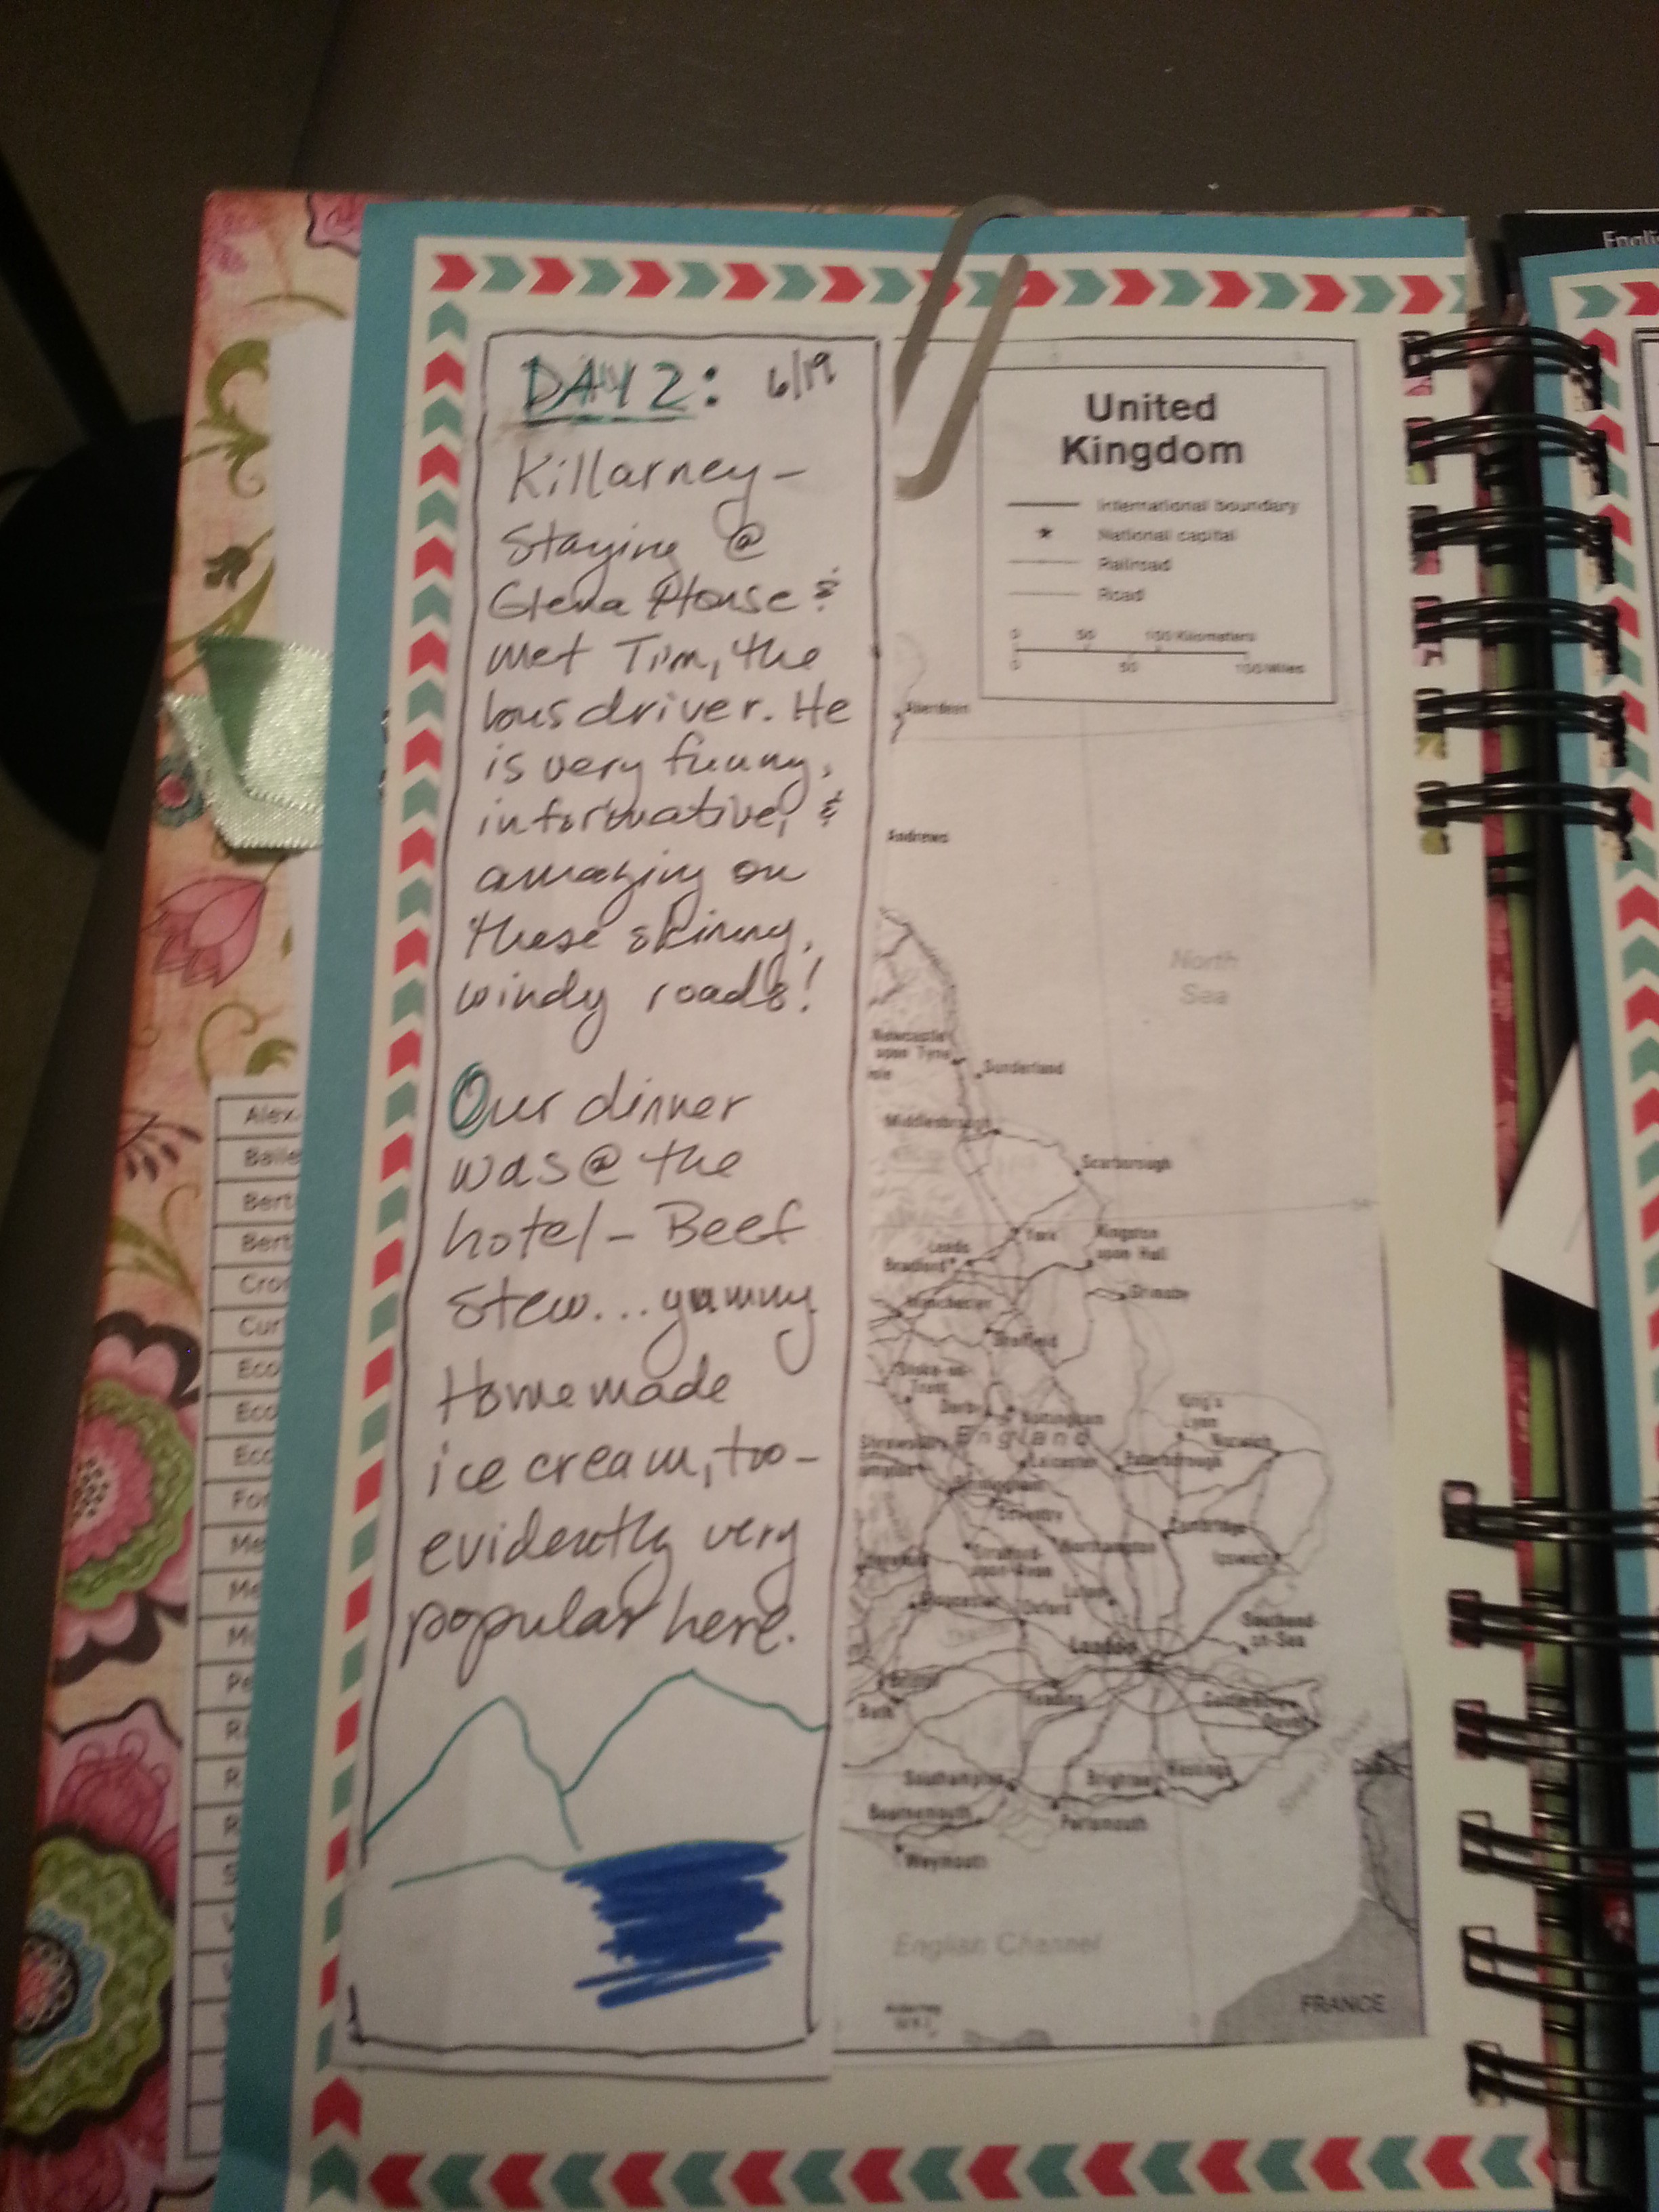 DAY 2: 6/19
Killarney –
Staying @
Glena House &
met Tim, the
bus driver. He
is very funny,
informative, &
amazing on
these skinny,
windy roads!
Our dinner
was @ the
hotel – Beef
Stew... yummy
Homemade
ice cream, too –
evidently very
popular here.
United
Kingdom
International boundary
National capital
Railroad
Road
0 50 100 Kilometers
0 50 100 Miles
Aberdeen
Andrews
North
Sea
Newcastle
upon Tyne
Sunderland
Middlesbrough
Scarborough
York
Kingston
upon Hull
Leeds
Bradford
Grimsby
Manchester
Sheffield
Stoke-on-
Trent
Derby
Nottingham
King's
Lynn
Norwich
Shrewsbury
England
Leicester
Peterborough
Birmingham
Coventry
Cambridge
Northampton
Stratford-
upon-Avon
Ipswich
Luton
Gloucester
Oxford
Southend-
on-Sea
London
Bristol
Reading
Bath
Canterbury
Dover
Strait of Dover
Southampton
Brighton
Hastings
Bournemouth
Portsmouth
Weymouth
English Channel
Alderney
FRANCE
Alex
Baile
Bert
Bert
Cro
Cur
Eco
Eco
Eco
For
Me
Me
Pe
R
R
R
S